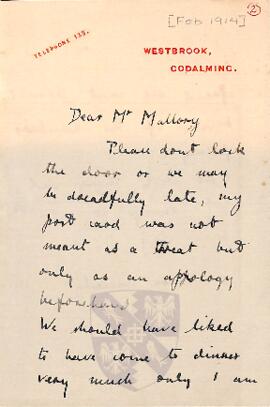 [Feb 1914]
2
TELEPHONE 133.
WESTBROOK,
GODALMING.
Dear Mr Mallory
Please dont lock
the door or we may
be dreadfully late, my
post card was not
meant as a threat but
only as an apology
beforehand
We should have liked
to have come to dinner
very much only I am